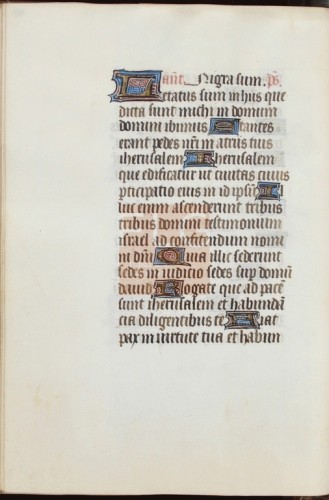 añt. Nigra sum. ps.
Letatus sum in hiis que
dicta sunt michi in domum
domini ibimus Stantes
erant pedes nr̃i in atriis tuis
iherusalem Iherusalem
que edificatur ut ciuitas cuius
p̱ticipatio eius in id ipsũ Il
luc enim ascenderunt tribus
tribus domini testimonium
israel ad confitendum nomi
ni dñi Quia illic sederunt
sedes in iudicio sedes sup domũ
dauid Rogate que ad pacẽ
sunt iherusalem et habundã
cia diligentibus te Fiat
pax in uirtute tua et habun